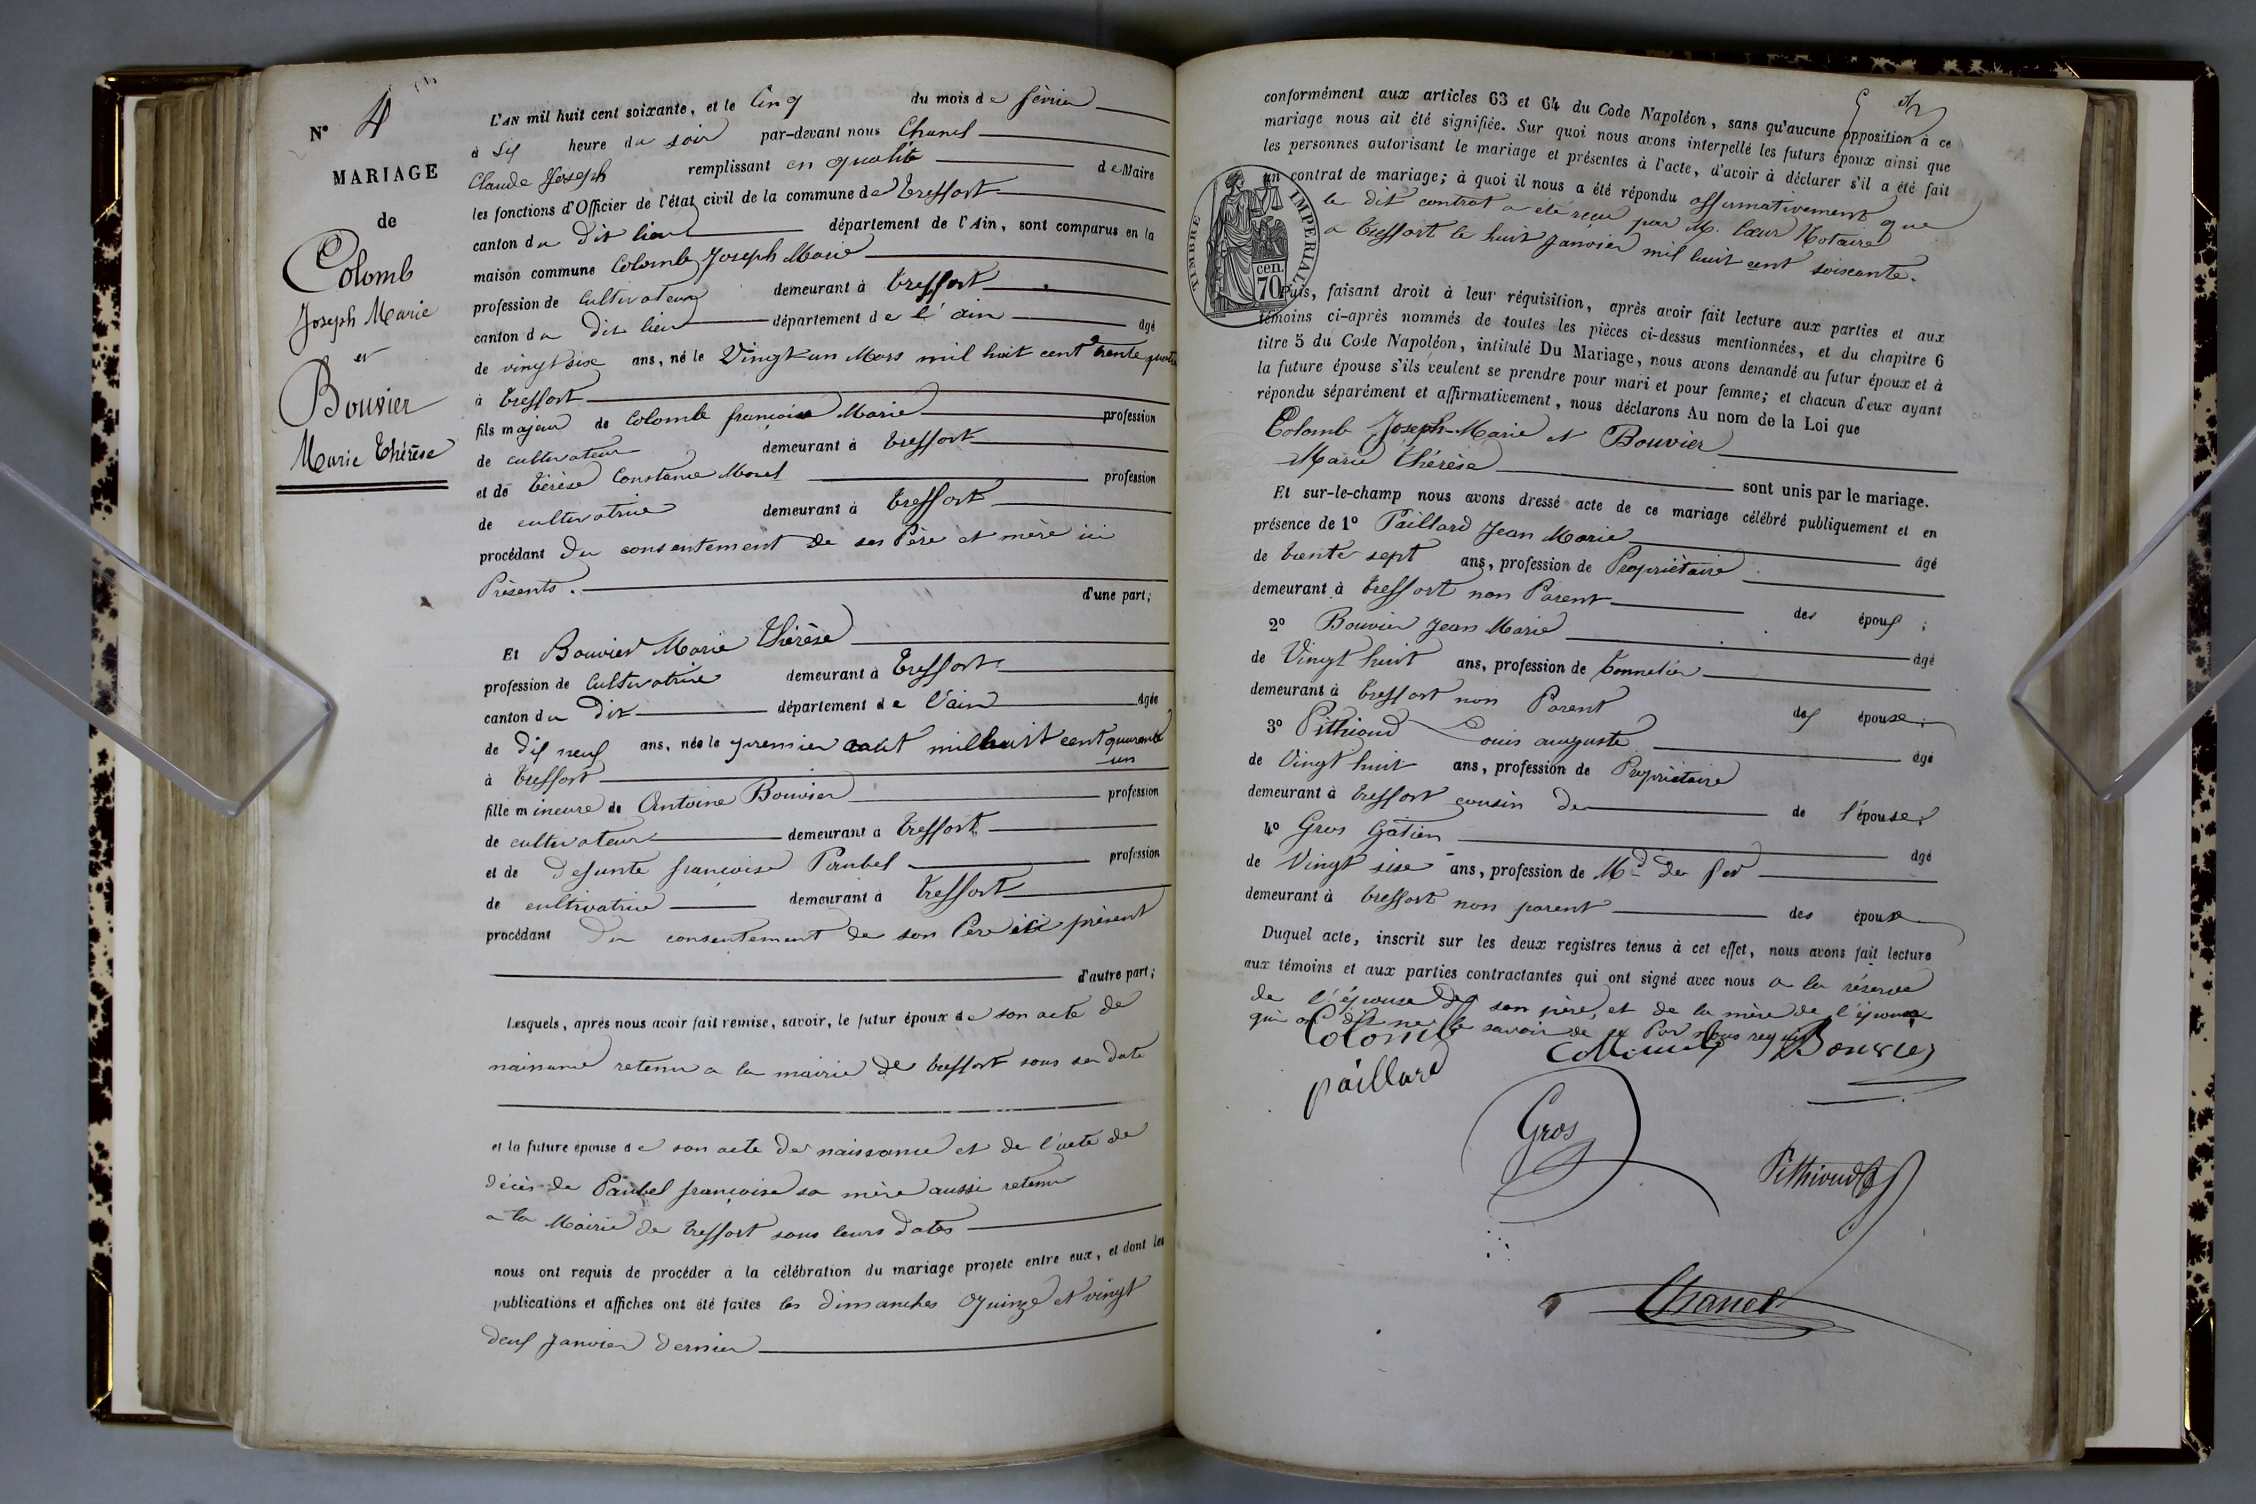 N° 4
MARIAGE
de
Colomb
Joseph Marie
et
Bouvier
Marie Thérèse
L'AN mil huit cent soixante, et le Cinq du mois de février
à six heure du soir par-devant nous Chanel
Claude Joseph remplissant en qualité de Maire
les fonctions d'Officier de l'état civil de la commune de Treffort
canton du dit lieu département de l'Ain, sont comparus en la
maison commune Colomb Joseph Marie
profession de Cultivateur demeurant à Treffort
canton du dit lieu département de l'ain âgé
de vingt six ans, né le Vingt un Mars mil huit cent trente quatre
à Treffort
fils majeur de Colomb françois Marie profession
de cultivateur demeurant à Treffort
et de Térèse Constance Morel profession
de cultivatrice demeurant à Treffort
procédant du consentement de ses Père et mère ici
Présents. d'une part;
Et Bouvier Marie Thérèse
profession de Cultivatrice demeurant à Treffort
canton du dit département de l'ain âgée
de dix neuf ans, née le premier août mil huit cent quarante
un
à Treffort
fille mineure de Antoine Bouvier profession
de cultivateur demeurant à Treffort
et de defunte françoise Paubel profession
de cultivatrice demeurant à Treffort
procédant du consentement de son Père ici présent
d'autre part;
Lesquels, après nous avoir fait remise, savoir, le futur époux de son acte de
naissance retenu a la mairie de treffort sous sa date
et la future épouse de son acte de naissance et de l'acte de
décès de Paubel françoise sa mère aussi retenu
a la Mairie de treffort sous leurs dates
nous ont requis de procéder à la célébration du mariage projeté entre eux, et dont les
publications et affiches ont été faites les dimanches Quinze et vingt
deux Janvier dernier
conformément aux articles 63 et 64 du Code Napoléon, sans qu'aucune opposition à ce
mariage nous ait été signifiée. Sur quoi nous avons interpellé les futurs époux ainsi que
les personnes autorisant le mariage et présentes à l'acte, d'avoir à déclarer s'il a été fait
un contrat de mariage; à quoi il nous a été répondu affirmativement que
le dit contrat a été reçu par M. Cœur Notaire
a treffort le huit Janvier mil huit cent soixante.
TIMBRE IMPERIAL
70 cen.
Puis, faisant droit à leur réquisition, après avoir fait lecture aux parties et aux
témoins ci-après nommés de toutes les pièces ci-dessus mentionnées, et du chapitre 6
titre 5 du Code Napoléon, intitulé Du Mariage, nous avons demandé au futur époux et à
la future épouse s'ils veulent se prendre pour mari et pour femme; et chacun d'eux ayant
répondu séparément et affirmativement, nous déclarons Au nom de la Loi que
Colomb Joseph-Marie et Bouvier
Marie Thérèse sont unis par le mariage.
Et sur-le-champ nous avons dressé acte de ce mariage célébré publiquement et en
présence de 1° Paillard Jean Marie âgé
de trente sept ans, profession de Propriétaire
demeurant à treffort non Parent des époux;
2° Bouvier Jean Marie âgé
de Vingt huit ans, profession de tonnelier
demeurant à treffort non Parent des épouse;
3° Pithioud Louis auguste âgé
de Vingt huit ans, profession de Propriétaire
demeurant à treffort cousin de de l'épouse;
4° Gros Gatien âgé
de Vingt sixe ans, profession de Md de fer
demeurant à treffort non parent des époux
Duquel acte, inscrit sur les deux registres tenus à cet effet, nous avons fait lecture
aux témoins et aux parties contractantes qui ont signé avec nous a la réserve
de l'épouse de son père et de la mère de l'époux
qui ont dit ne le savoir de ce Par nous requis
Colomb Colomb Bouvier
paillard
Gros
Pithioud
Chanel